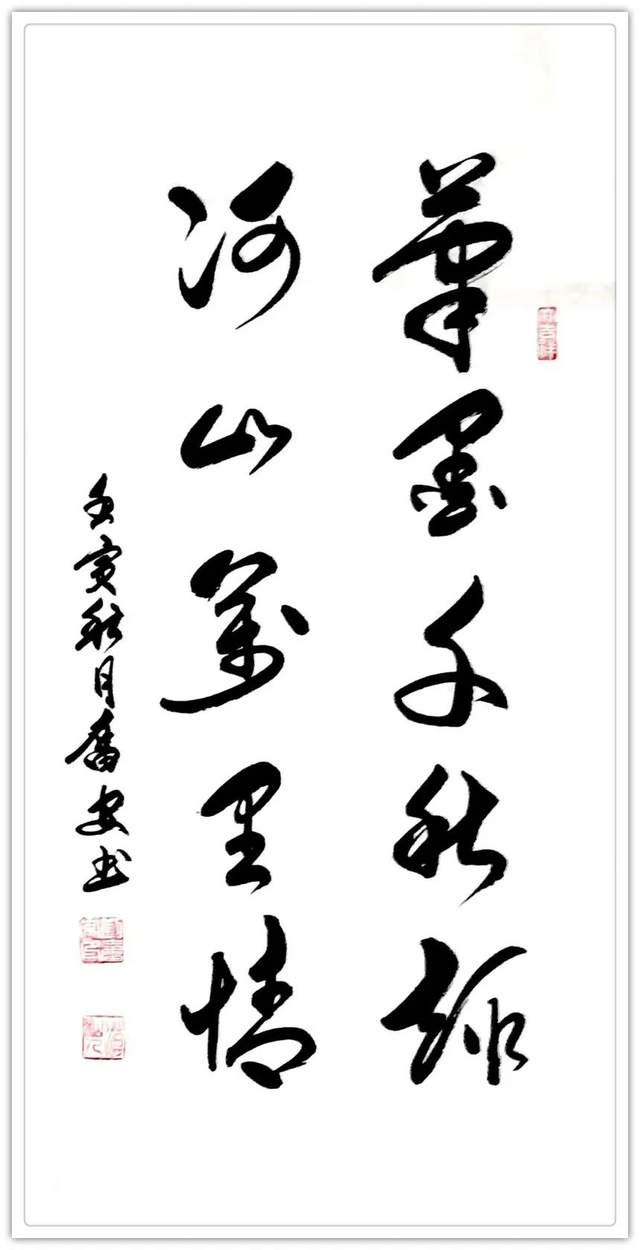 筆墨千秋趣
河山萬里情
壬寅秋月奮安书